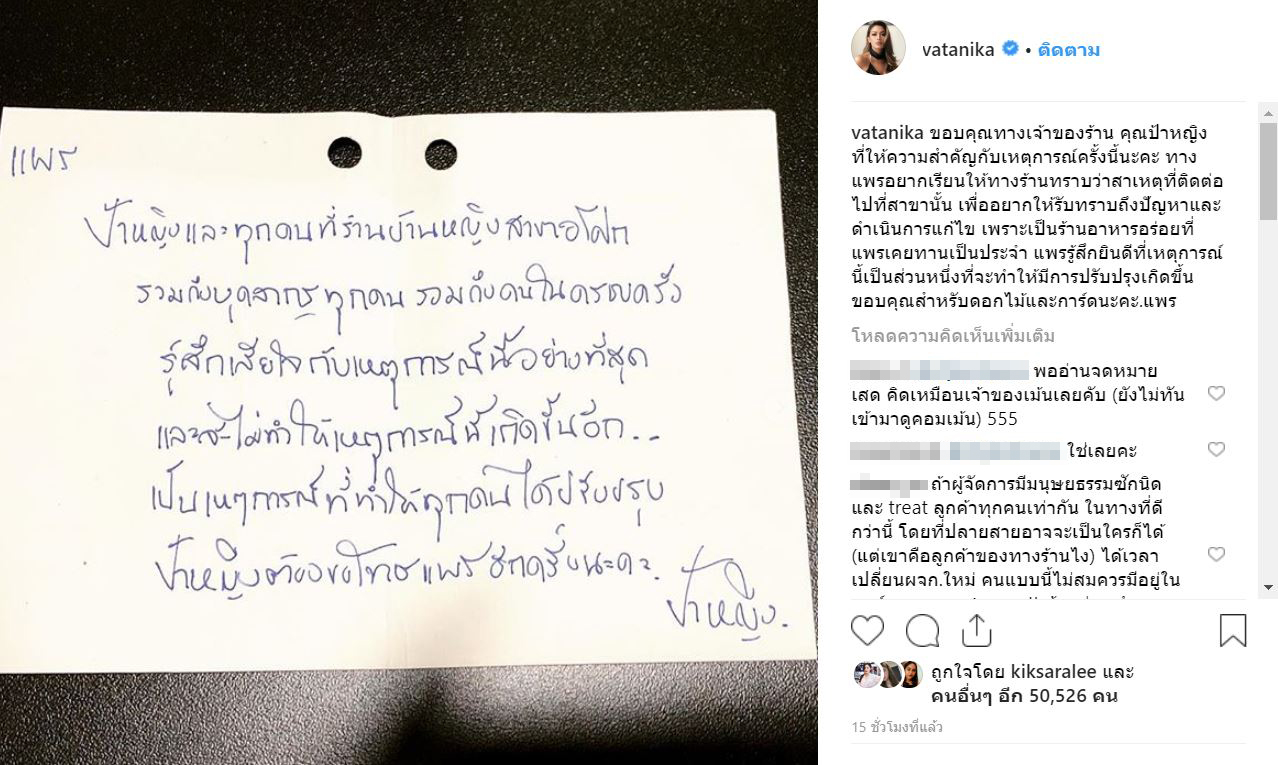 แพร
ป้าหญิงและทุกคนที่ร้านบ้านหญิงสาขาอโศก
รวมถึงบุคลากรทุกคน รวมถึงคนในครอบครัว
รู้สึกเสียใจกับเหตุการณ์นี้อย่างที่สุด
และจะไม่ทำให้เหตุการณ์นี้เกิดขึ้นอีก...
เป็นเหตุการณ์ที่ทำให้ทุกคนได้ปรับปรุง
ป้าหญิงต้องขอโทษแพรอีกครั้งนะคะ.
ป้าหญิง.
vatanika • ติดตาม
vatanika ขอบคุณทางเจ้าของร้าน คุณป้าหญิง
ที่ให้ความสำคัญกับเหตุการณ์ครั้งนี้นะคะ ทาง
แพรอยากเรียนให้ทางร้านทราบว่าสาเหตุที่ติดต่อ
ไปที่สาขานั้น เพื่ออยากให้รับทราบถึงปัญหาและ
ดำเนินการแก้ไข เพราะเป็นร้านอาหารอร่อยที่
แพรเคยทานเป็นประจำ แพรรู้สึกยินดีที่เหตุการณ์
นี้เป็นส่วนหนึ่งที่จะทำให้มีการปรับปรุงเกิดขึ้น
ขอบคุณสำหรับดอกไม้และการ์ดนะคะ.แพร
โหลดความคิดเห็นเพิ่มเติม
พออ่านจดหมาย
เสด คิดเหมือนเจ้าของเม้นเลยคับ (ยังไม่ทัน
เข้ามาดูคอมเม้น) 555
ใช่เลยคะ
ถ้าผู้จัดการมีมนุษยธรรมซักนิด
และ treat ลูกค้าทุกคนเท่ากัน ในทางที่ดี
กว่านี้ โดยที่ปลายสายอาจจะเป็นใครก็ได้
(แต่เขาคือลูกค้าของทางร้านไง) ได้เวลา
เปลี่ยนผจก.ใหม่ คนแบบนี้ไม่สมควรมีอยู่ใน
ถูกใจโดย kiksaralee และ
คนอื่นๆ อีก 50,526 คน
15 ชั่วโมงที่แล้ว